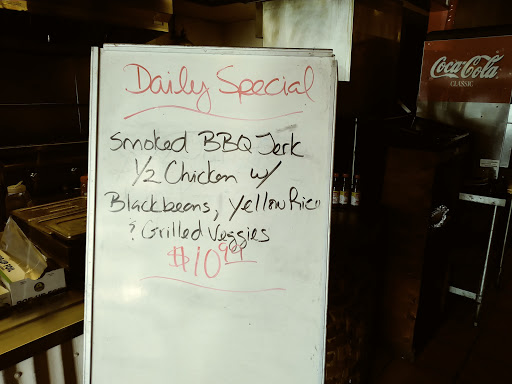 Daily Special
Smoked BBQ Jerk
1/2 Chicken w/
Blackbeans, Yellow Rice
& Grilled Veggies
$10.99
Coca-Cola
CLASSIC